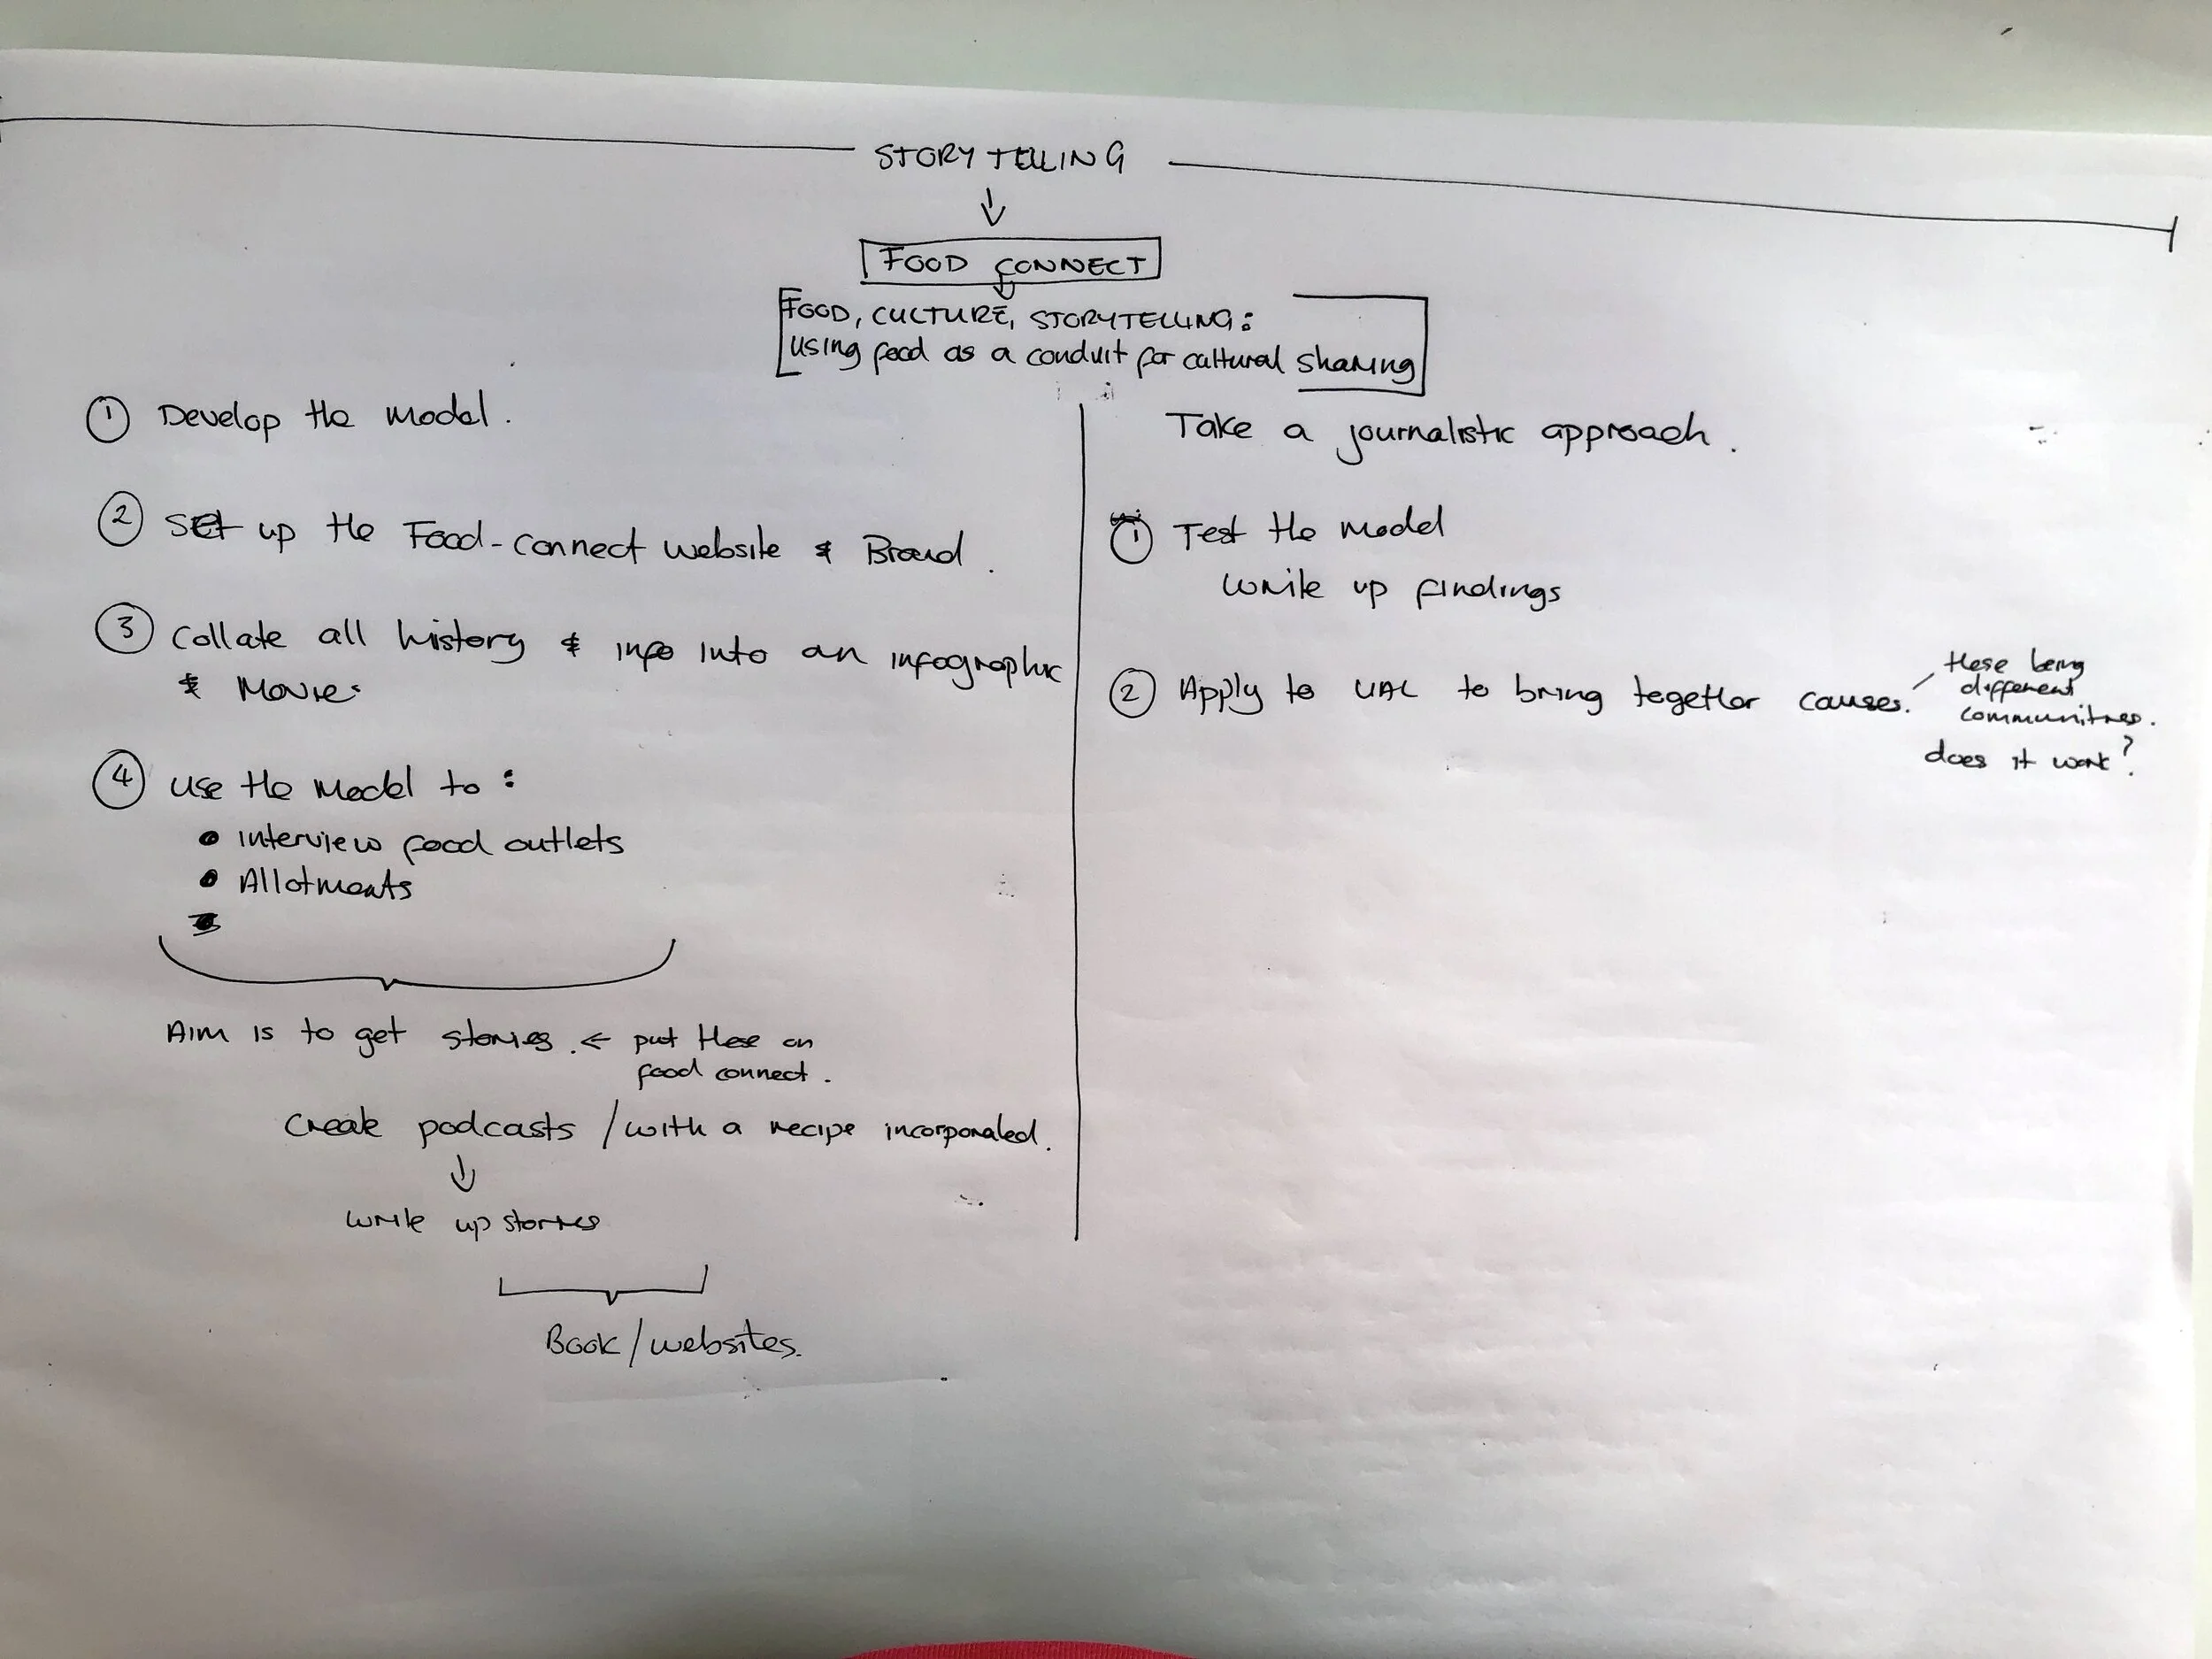 STORYTELLING
FOOD CONNECT
FOOD, CULTURE, STORYTELLING:
using food as a conduit for cultural sharing
① Develop the model.
② Set up the Food-connect website & Brand.
③ Collate all history & info into an infographic
& Movie.
④ Use the Model to:
• Interview food outlets
• Allotments
Aim is to get stories. ← put these on
food connect.
Create podcasts / with a recipe incorporated.
↓
write up stories
Book / websites.
Take a journalistic approach.
① Test the model
write up findings
② Apply to UAL to bring together causes.
these being
different
communities.
does it work?